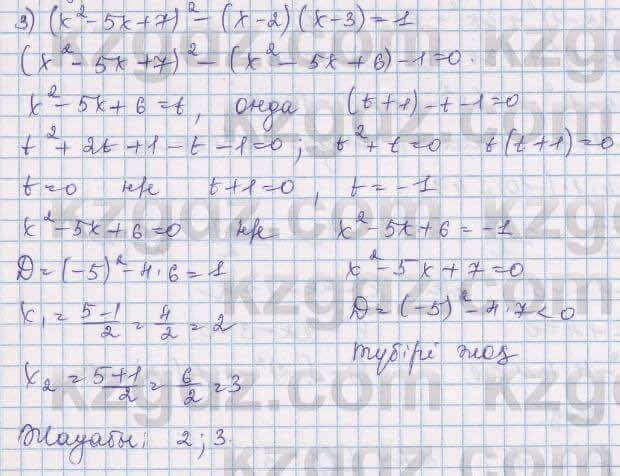 3) (x² - 5x + 7)² - (x - 2)(x - 3) = 1
(x² - 5x + 7)² - (x² - 5x + 6) - 1 = 0.
x² - 5x + 6 = t, онда (t + 1) - t - 1 = 0
t² + 2t + 1 - t - 1 = 0; t² + t = 0 t(t + 1) = 0
t = 0 н/е t + 1 = 0, t = -1
x² - 5x + 6 = 0 н/е x² - 5x + 6 = -1
D = (-5)² - 4·6 = 1 x² - 5x + 7 = 0
x₁ = (5-1)/2 = 4/2 = 2 D = (-5)² - 4·7 < 0
түбірі жоқ
x₂ = (5+1)/2 = 6/2 = 3
Жауабы: 2; 3.
kzgdz.com